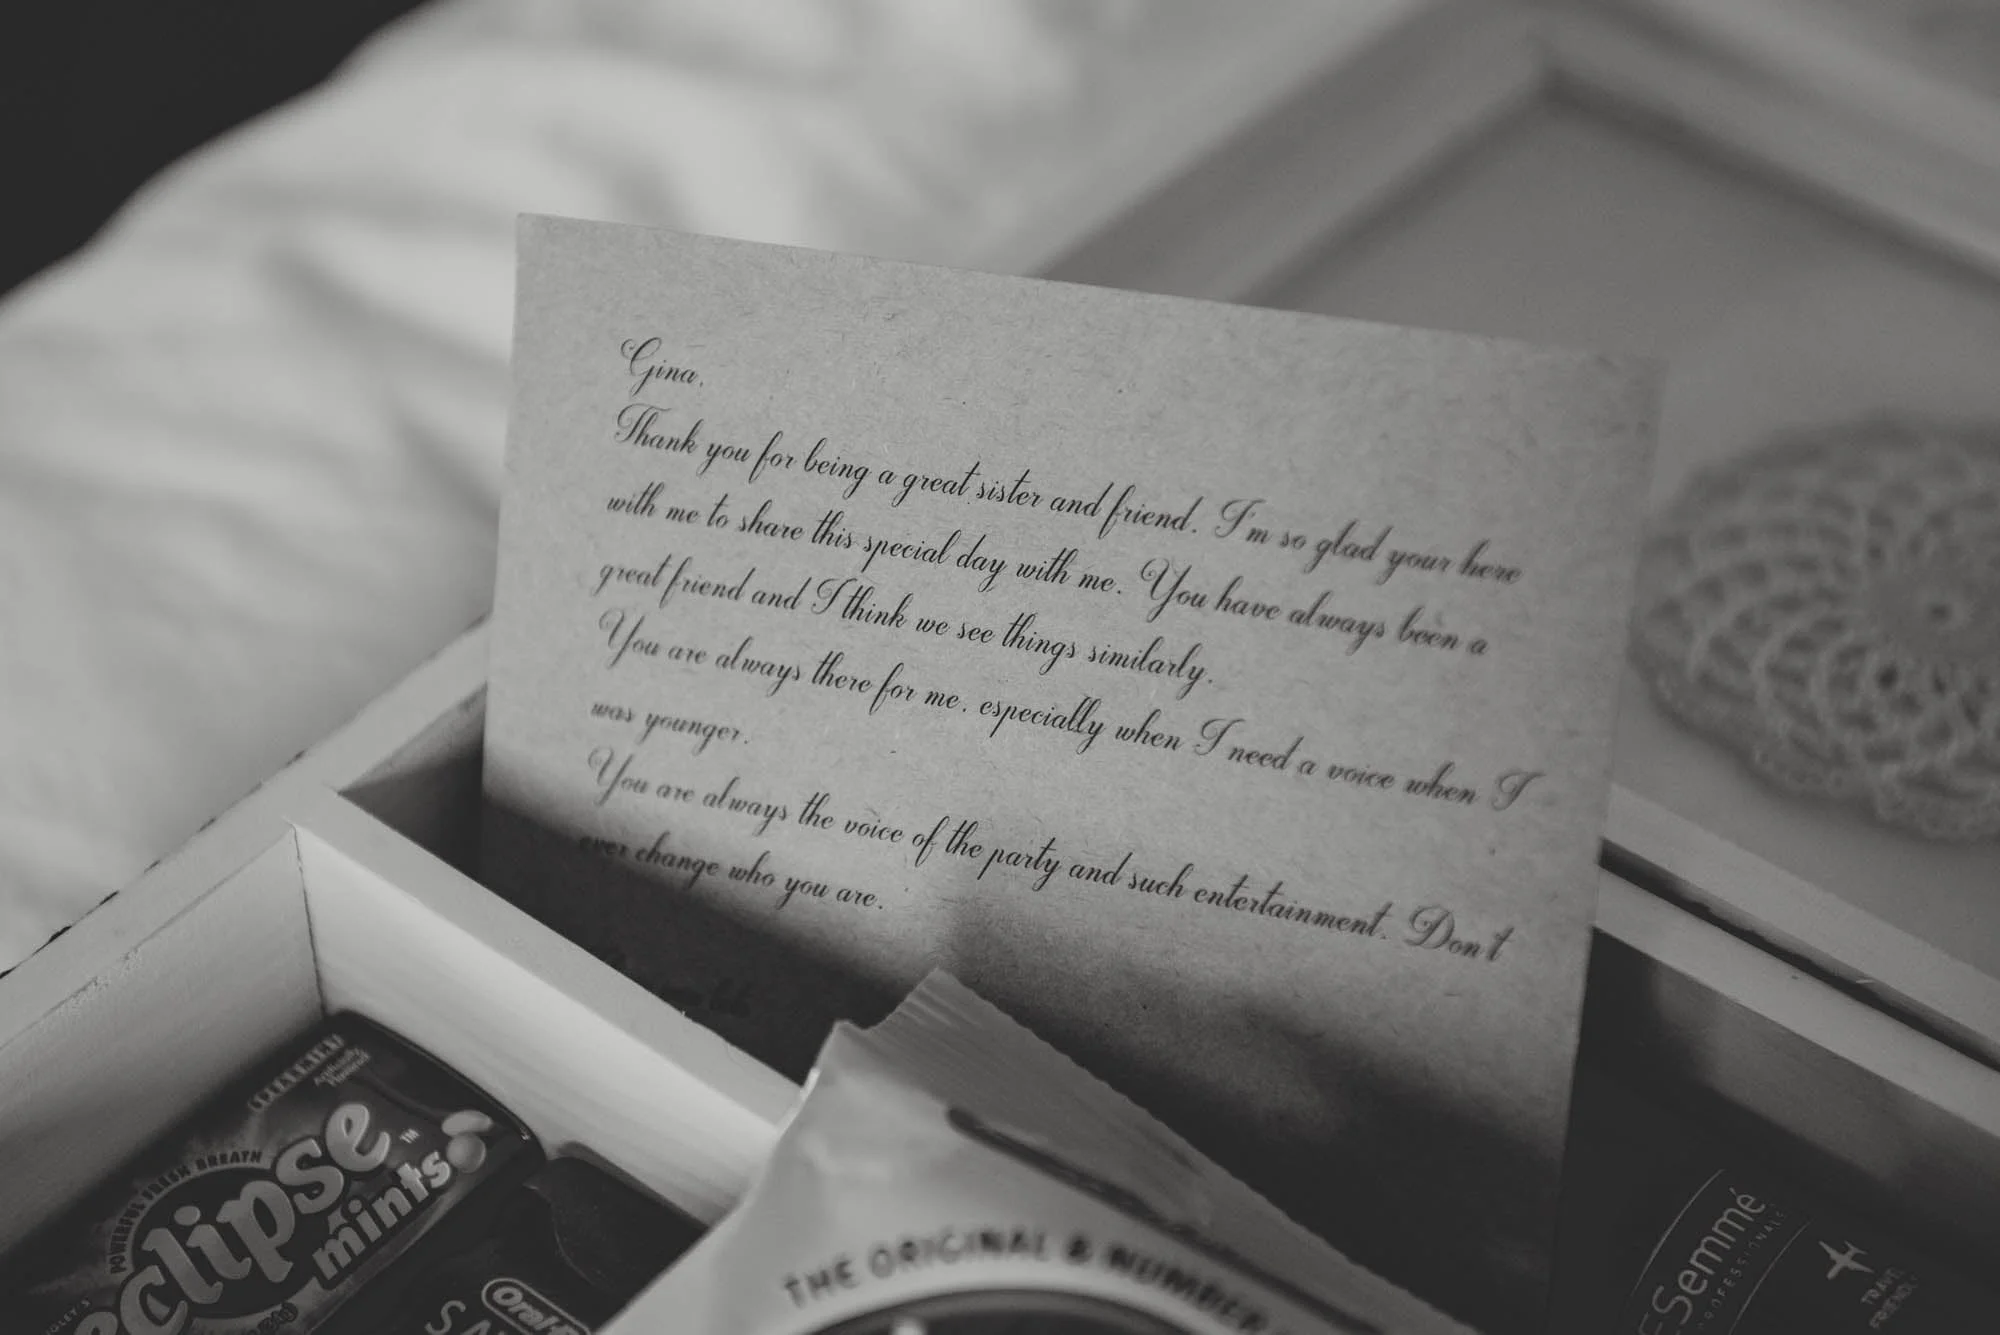 Gina,
Thank you for being a great sister and friend. I'm so glad your here
with me to share this special day with me. You have always been a
great friend and I think we see things similarly.
You are always there for me, especially when I need a voice when I
was younger.
You are always the voice of the party and such entertainment. Don't
ever change who you are.
Artificially
Flavored
POWERFUL FRESH BREATH
eclipse™
mints
34g
Oral-B
THE ORIGINAL & NUMBER
Semmé
PROFESSIONAL
TRAVEL
FRIENDLY